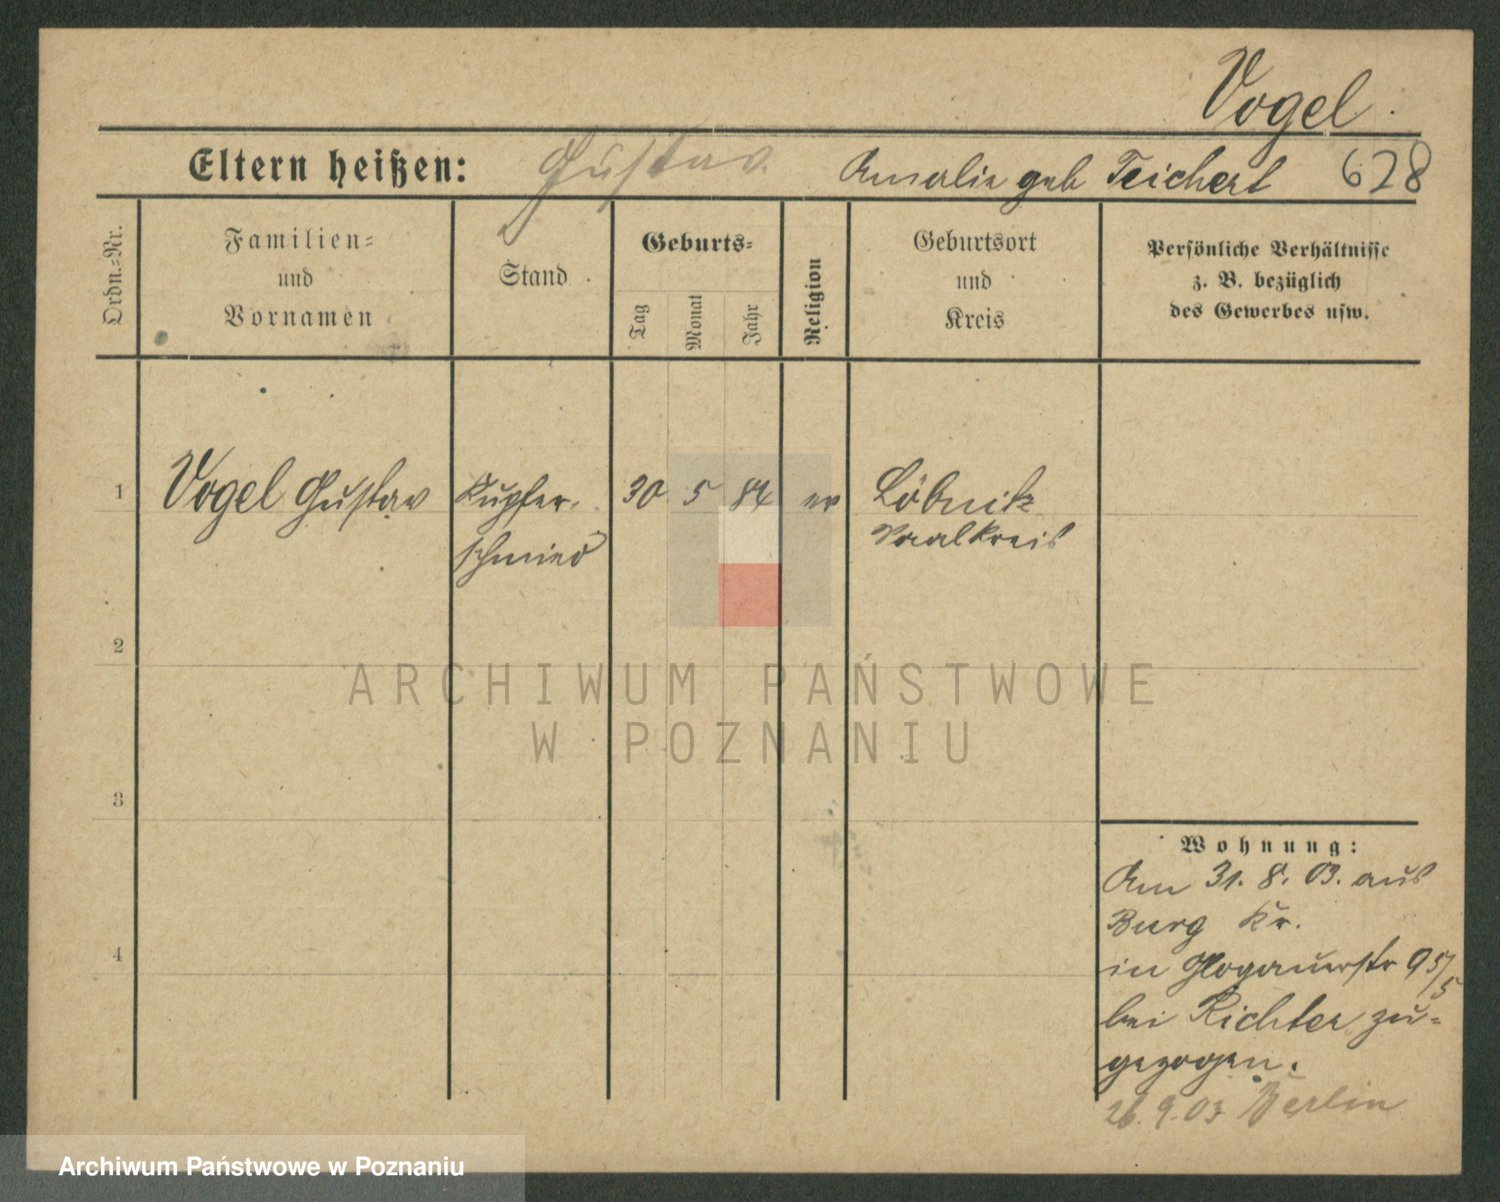 Vogel.
Eltern heißen: Gustav. Amalie geb Teichert 628
Ordn.-Nr.
Familien-
und
Vornamen
Stand
Geburts-
Tag
Monat
Jahr
Religion
Geburtsort
und
Kreis
Persönliche Verhältnisse
z. B. bezüglich
des Gewerbes usw.
1 Vogel Gustav Kupfer- 30 5 84 ev Löbnitz
schmied Saalkreis
2
3
4
ARCHIWUM PAŃSTWOWE
W POZNANIU
Wohnung:
Am 31. 8. 03. aus
Burg Kr.
in Glogauerstr 95/5
bei Richter zu-
gezogen.
26. 9. 03 Berlin
Archiwum Państwowe w Poznaniu